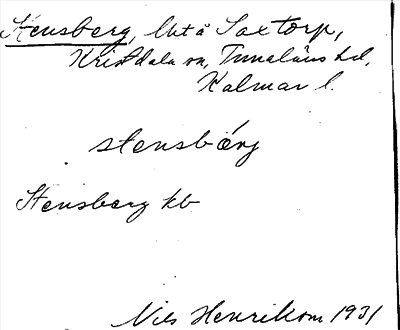 Stensberg, lht å Saxtorp,
Kristdala sn, Tunaläns hd,
Kalmar l.
stensbærg
Stensberg kb
Nils Henrikson 1931